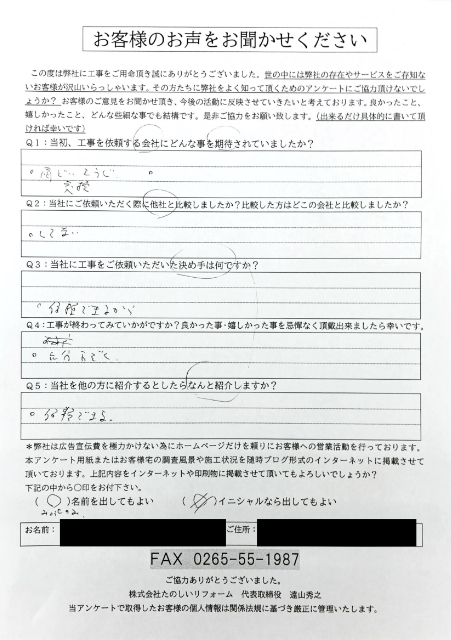 お客様のお声をお聞かせください
この度は弊社に工事をご用命頂き誠にありがとうございました。世の中には弊社の存在やサービスをご存知な
いお客様が沢山いらっしゃいます。その方たちに弊社をよく知って頂くためのアンケートにご協力頂けないでし
ょうか？お客様のご意見をお聞かせ頂き、今後の活動に反映させていきたいと考えております。良かったこと、
嬉しかったこと、どんな些細な事でも結構です。是非ご協力をお願い致します。（出来るだけ具体的に書いて頂
ければ幸いです）
Q１：当初、工事を依頼する会社にどんな事を期待されていましたか？
雨どいそうじ
交換
Q２：当社にご依頼いただく際に他社と比較しましたか？比較した方はどこの会社と比較しましたか？
してない
Q３：当社に工事をご依頼いただいた決め手は何ですか？
信頼できるから
Q４：工事が終わってみていかがですか？良かった事・嬉しかった事を忌憚なく頂戴出来ましたら幸いです。
Q５：当社を他の方に紹介するとしたらなんと紹介しますか？
信頼できる。
＊弊社は広告宣伝費を極力かけない為にホームページだけを頼りにお客様への営業活動を行っております。
本アンケート用紙またはお客様宅の調査風景や施工状況を随時ブログ形式のインターネットに掲載させて
頂いております。上記内容をインターネットや印刷物に掲載させて頂いてもよろしいでしょうか？
下記の中から〇印をお付下さい。
（ 〇 ）名前を出してもよい （ ）イニシャルなら出してもよい
みょうじのみ
お名前： ご住所：
FAX 0265-55-1987
ご協力ありがとうございました。
株式会社たのしいリフォーム 代表取締役 遠山秀之
当アンケートで取得したお客様の個人情報は関係法規に基づき厳正に管理いたします。